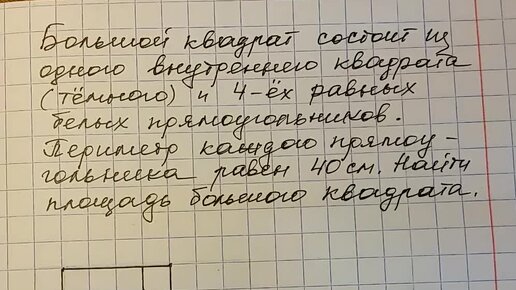 Большой квадрат состоит из
одного внутреннего квадрата
(тёмного) и 4-ёх равных
белых прямоугольников.
Периметр каждого прямоу-
гольника равен 40 см. Найти
площадь большого квадрата.